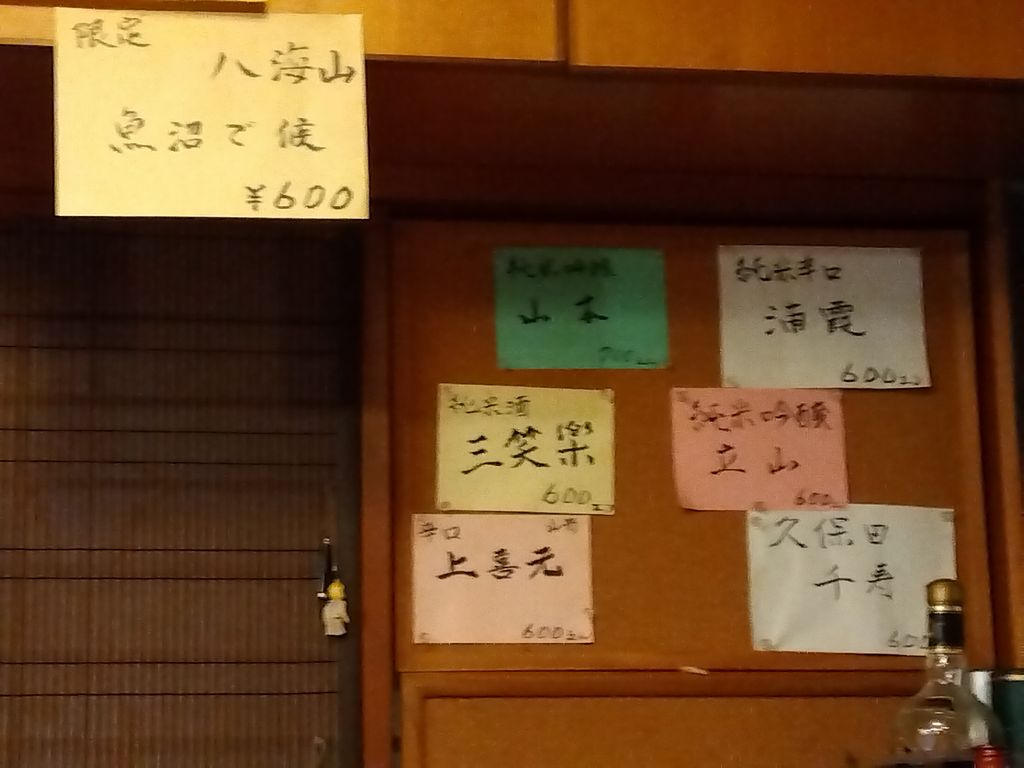 限定
八海山
魚沼で候
¥600
純米吟醸
山本
700エン
純米辛口
浦霞
600エン
純米酒
三笑楽
600エン
純米吟醸
立山
600エン
辛口 山形
上喜元
600エン
久保田
千寿
600